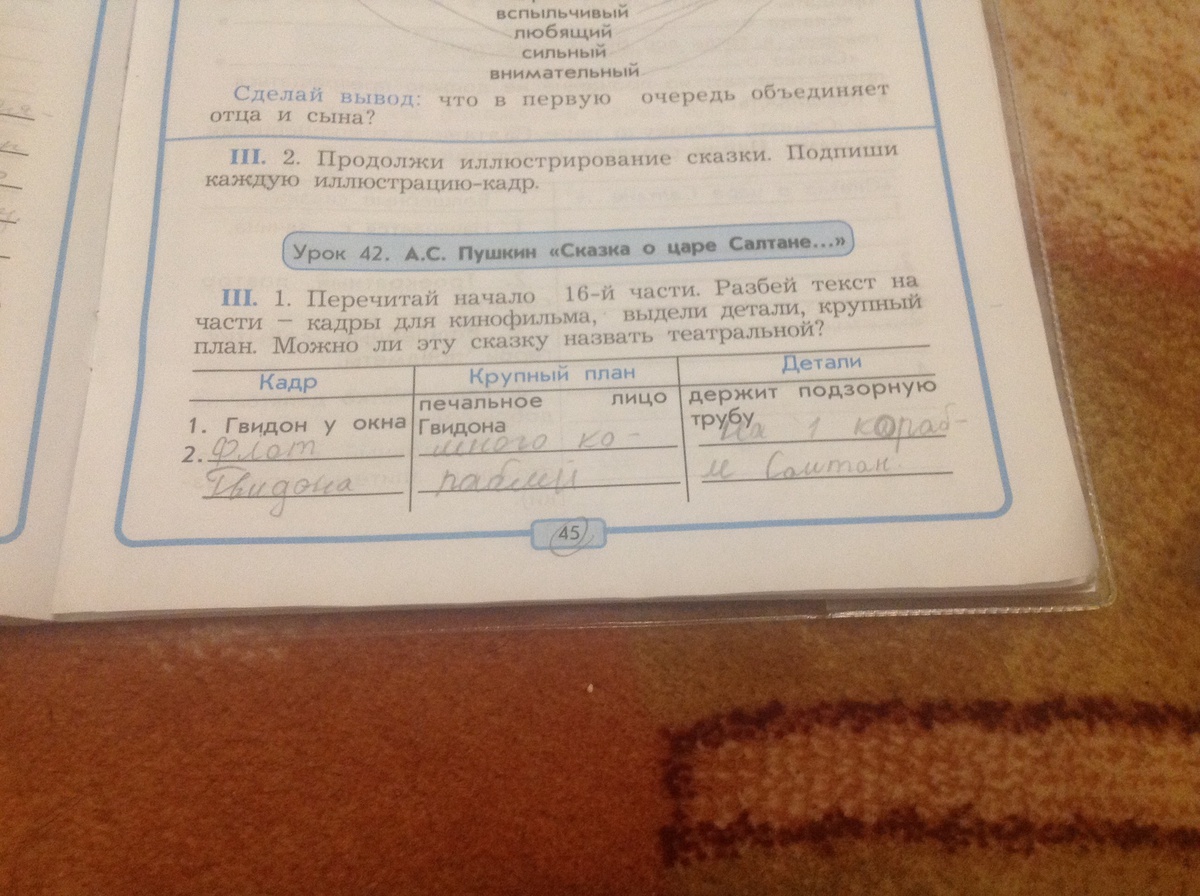 вспыльчивый
любящий
сильный
внимательный
Сделай вывод: что в первую очередь объединяет
отца и сына?
III. 2. Продолжи иллюстрирование сказки. Подпиши
каждую иллюстрацию-кадр.
Урок 42. А.С. Пушкин «Сказка о царе Салтане...»
III. 1. Перечитай начало 16-й части. Разбей текст на
части – кадры для кинофильма, выдели детали, крупный
план. Можно ли эту сказку назвать театральной?
Кадр Крупный план Детали
печальное лицо держит подзорную
1. Гвидон у окна Гвидона трубу
2. Флот много ко- На 1 кораб-
Гвидона раблей ле Салтан.
45